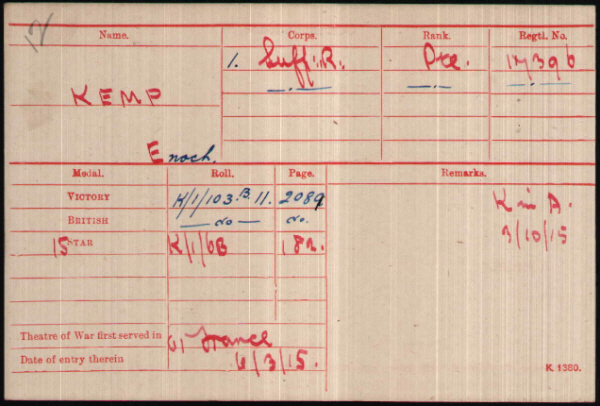 12
Name. Corps. Rank. Regtl. No.
1. Suff. R. Pte. 17396
KEMP
Enoch.
Medal. Roll. Page. Remarks.
VICTORY K/1/103.B.11. 2089
BRITISH —do— do.
15 STAR K/1/6B 182.
K in A.
3/10/15
Theatre of War first served in France
Date of entry therein 6/3/15.
K 1380.